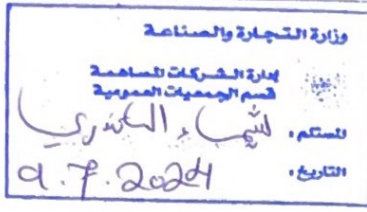 وزارة التجارة والصناعة
إدارة الشركات المساهمة
قسم الجمعيات العمومية
المستلم: شيماء
التاريخ: 9.7.2024